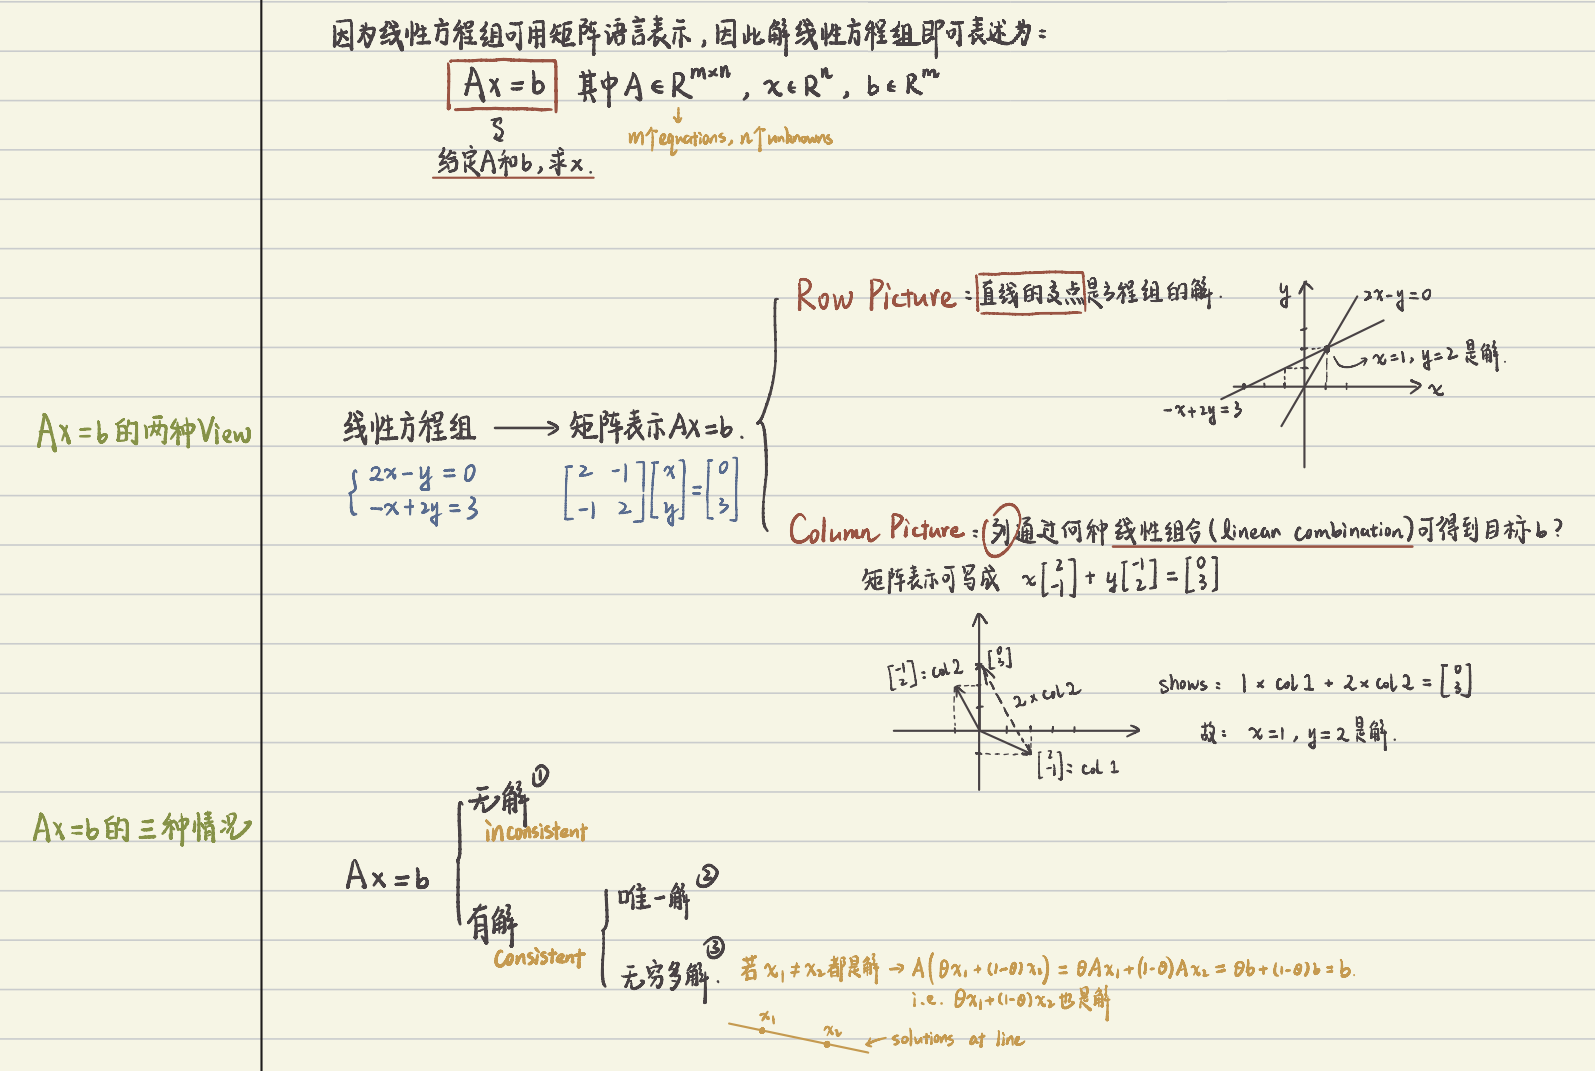 因为线性方程组可用矩阵语言表示，因此解线性方程组即可表述为：
Ax=b 其中 A∈R^{m×n}, x∈R^n, b∈R^m
m个equations, n个unknowns
给定A和b，求x.
Row Picture：直线的交点是方程组的解.
y
2x-y=0
x=1, y=2 是解.
x
-x+2y=3
Ax=b的两种View
线性方程组 → 矩阵表示Ax=b.
{ 2x-y=0
-x+2y=3
[2 -1; -1 2][x; y]=[0; 3]
Column Picture：列通过何种线性组合(linear combination)可得到目标b?
矩阵表示可写成 x[2; -1]+y[-1; 2]=[0; 3]
[0; 3]
[-1; 2]: col 2
2×col 2
[2; -1]: col 1
shows: 1×col 1 + 2×col 2=[0; 3]
故: x=1, y=2是解.
Ax=b的三种情况
Ax=b
无解①
inconsistent
有解
consistent
唯一解②
无穷多解③.
若x₁≠x₂都是解 → A(θx₁+(1-θ)x₂)=θAx₁+(1-θ)Ax₂=θb+(1-θ)b=b.
i.e. θx₁+(1-θ)x₂也是解
x₁
x₂
← solutions at line